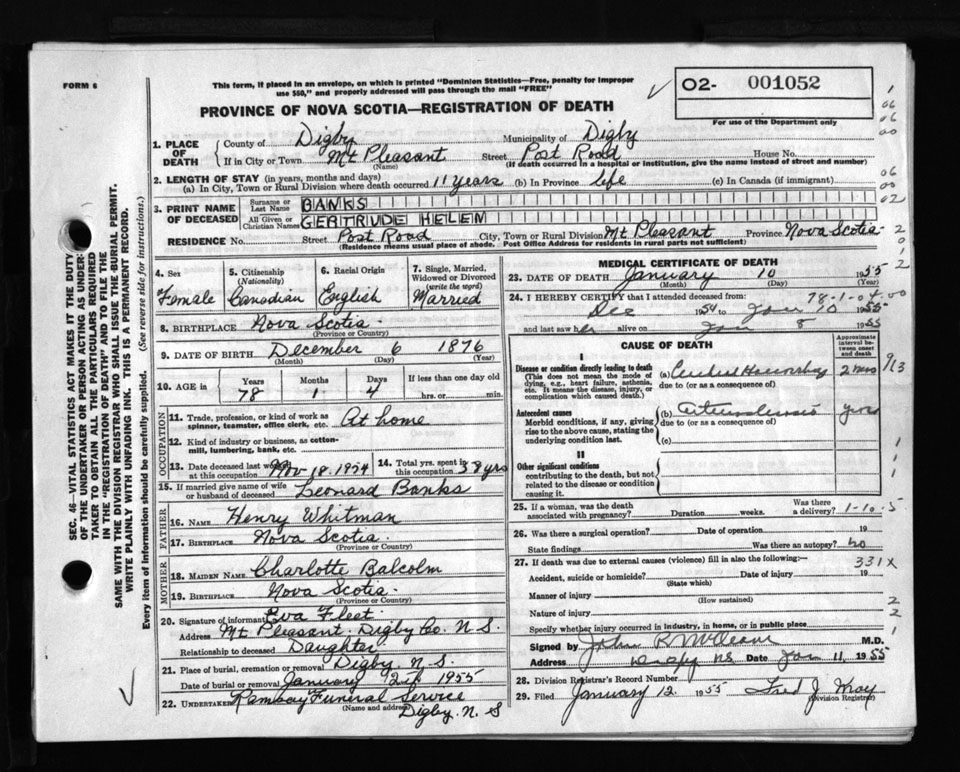 FORM 6
This form, if placed in an envelope, on which is printed "Dominion Statistics—Free, penalty for improper
use $50," and properly addressed will pass through the mail "FREE"
PROVINCE OF NOVA SCOTIA—REGISTRATION OF DEATH
O2- 001052
For use of the Department only
1. PLACE OF DEATH
County of Digby Municipality of Digby
If in City or Town Mt Pleasant Street Post Road House No.
(Name) (If death occurred in a hospital or institution, give the name instead of street and number)
2. LENGTH OF STAY (in years, months and days)
(a) In City, Town or Rural Division where death occurred 11 years (b) In Province life (c) In Canada (if immigrant)
3. PRINT NAME OF DECEASED
Surname or Last Name BANKS
All Given or Christian Names GERTRUDE HELEN
RESIDENCE No. Street Post Road City, Town or Rural Division Mt Pleasant Province Nova Scotia
(Residence means usual place of abode. Post Office Address for residents in rural parts not sufficient)
4. Sex Female
5. Citizenship (Nationality) Canadian
6. Racial Origin English
7. Single, Married, Widowed or Divorced (write the word) Married
8. BIRTHPLACE Nova Scotia
(Province or Country)
9. DATE OF BIRTH December 6 1876
(Month) (Day) (Year)
10. AGE in Years 78 Months 1 Days 4 If less than one day old hrs. or min.
OCCUPATION
11. Trade, profession, or kind of work as spinner, teamster, office clerk, etc. At home
12. Kind of industry or business, as cotton-mill, lumbering, bank, etc.
13. Date deceased last worked at this occupation Nov 18. 1954
14. Total yrs. spent in this occupation 38 yrs
15. If married give name of wife or husband of deceased Leonard Banks
FATHER
16. NAME Henry Whitman
17. BIRTHPLACE Nova Scotia
(Province or Country)
MOTHER
18. MAIDEN NAME Charlotte Balcolm
19. BIRTHPLACE Nova Scotia
(Province or Country)
20. Signature of informant Eva Fleet
Address Mt Pleasant. Digby Co. N S.
Relationship to deceased Daughter
21. Place of burial, cremation or removal Digby. N. S.
Date of burial or removal January 1955
22. UNDERTAKER Ramsay Funeral Service
(Name and address) Digby. N. S
MEDICAL CERTIFICATE OF DEATH
23. DATE OF DEATH January 10 1955
(Month) (Day)
24. I HEREBY CERTIFY that I attended deceased from: 78-1-04-00
Dec 1954 to Jan 10 1955
and last saw her alive on Jan 8 1955
CAUSE OF DEATH
Approximate interval between onset and death
I
Disease or condition directly leading to death
(This does not mean the mode of dying, e.g., heart failure, asthenia, etc. It means the disease, injury, or complication which caused death.)
(a) Cerebral Hemorrhage 2 mos
due to (or as a consequence of)
Antecedent causes
Morbid conditions, if any, giving rise to the above cause, stating the underlying condition last.
(b) years
due to (or as a consequence of)
(c)
II
Other significant conditions
contributing to the death, but not related to the disease or condition causing it.
25. If a woman, was the death associated with pregnancy? Duration weeks. Was there a delivery? 1-10-5
26. Was there a surgical operation? Date of operation 19
State findings Was there an autopsy? no
27. If death was due to external causes (violence) fill in also the following:— 331X
Accident, suicide or homicide? Date of injury 19
(State which)
Manner of injury
(How sustained)
Nature of injury
Specify whether injury occurred in industry, in home, or in public place
Signed by John R McCleave M.D.
Address Digby NS Date Jan 11, 1955
28. Division Registrar's Record Number
29. Filed January 12. 1955 Fred J Wray
(Division Registrar)
SEC. 46—VITAL STATISTICS ACT MAKES IT THE DUTY
OF THE UNDERTAKER OR PERSON ACTING AS UNDERTAKER
TO OBTAIN ALL THE PARTICULARS REQUIRED
IN THE "REGISTRATION OF DEATH" AND TO FILE THE
SAME WITH THE DIVISION REGISTRAR WHO SHALL ISSUE THE BURIAL PERMIT.
WRITE PLAINLY WITH UNFADING INK. THIS IS A PERMANENT RECORD.
Every item of information should be carefully supplied. (See reverse side for instructions.)